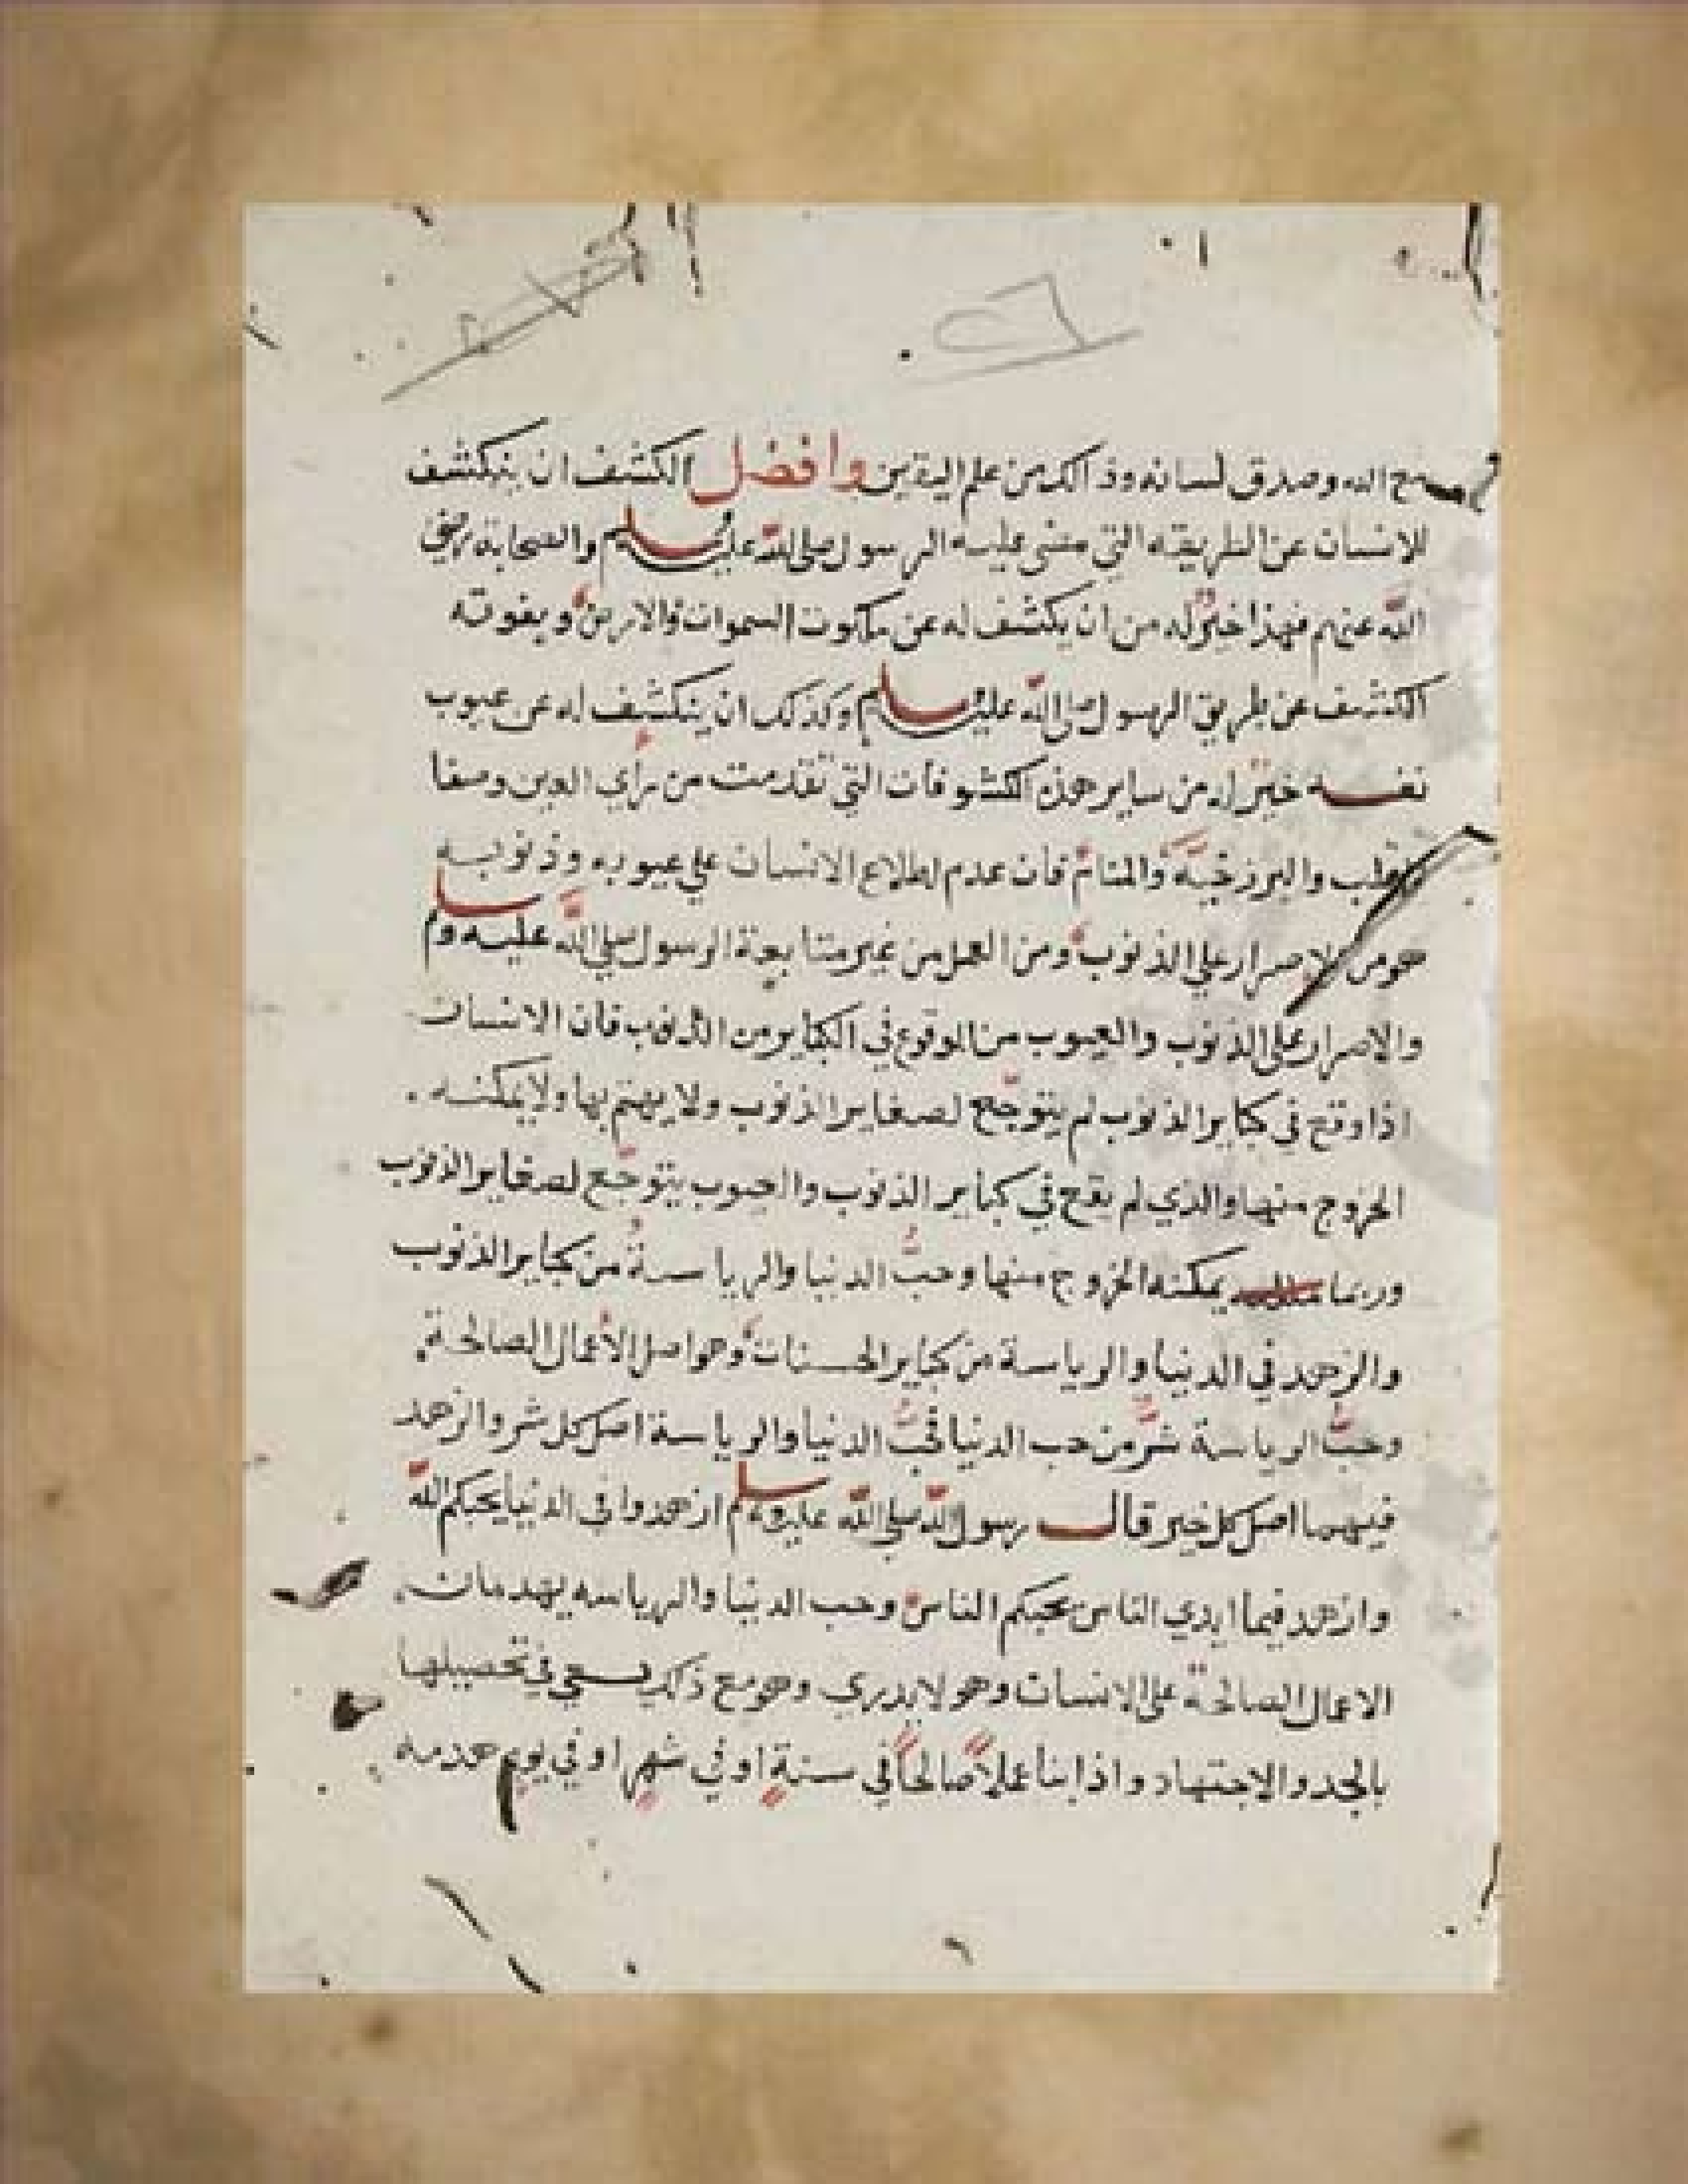 مع الله وصدق لسانه وذالك من علم اليقين وافضل الكشف ان ينكشف
للانسان عن الطريقه التي مشى عليه الرسول صلى الله عليه وسلم والصحابة رضي
الله عنهم فهذا خيرٌ له من ان يكشف له عن ملكوت السموات والارض ويفوته
الكشف عن طريق الرسول صلى الله عليه وسلم وكذلك ان ينكشف له عن عيوب
نفسه خيرٌ له من ساير هذه الكشوفات التي تقدمت من رأي العين وصفا
القلب والبرزخيّه والمنام فان عدم اطلاع الانسان علي عيوبه وذنوبه
هو من الاصرار علي الذنوب ومن العمل من غير متابعة الرسول صلي الله عليه وسلم
والاصرار على الذنوب والعيوب من الوقوع في الكباير من الذنوب فان الانسان
اذا وقع في كباير الذنوب لم يتوجّع لصغاير الذنوب ولا يهتم بها ولا يمكنه
الخروج منها والذي لم يقع في كباير الذنوب والعيوب يتوجّع لصغاير الذنوب
وربما يمكنه الخروج منها وحبُّ الدنيا والرياسةُ من كباير الذنوب
والزهد في الدنيا والرياسة من كباير الحسنات وهو اصل الأعمال الصالحة
وحبُّ الرياسة شرٌّ من حب الدنيا فحبُّ الدنيا والرياسة اصل كل شر والزهد
فيهما اصل كل خير قال رسول الله صلي الله عليه وسلم ازهدوا في الدنيا يحبكم الله
وازهد فيما ايدي الناس يحبكم الناس وحب الدنيا والرياسه يهدمان
الاعمال الصالحة على الانسان وهو لا يدري وهو مع ذلك يسعي في تحصيلها
بالجد والاجتهاد واذا بنا عملاً صالحاً في سنةٍ او في شهرٍ او في يومٍ هدمه
٦